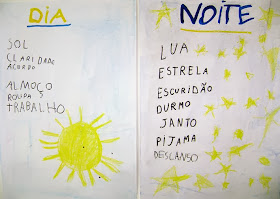 DIA
SOL
CLARIDADE
ACORDO
ALMOÇO
ROUPAS
TRABALHO
NOITE
LUA
ESTRELA
ESCURIDÃO
DURMO
JANTO
PIJAMA
DESCANSO